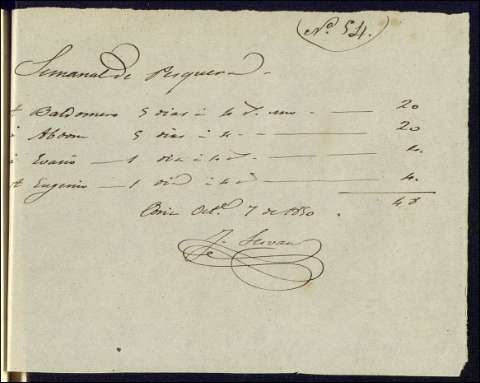 Nº 54.
Semanal de Pesquera.
A Baldomero 5 dias á 4 d. uno 20
á Abdon 5 dias á 4 20
á Evaristo 1 dia á 4 d. 4.
A Eugenio 1 dia á 4 d 4.
Coria Oct.e 7 de 1850.
48
J. Servan